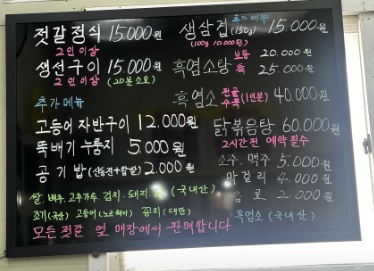 젓갈정식 15,000원
2인이상
생선구이 15,000원
2인이상 (20분소요)
추가메뉴
고등어자반구이 12.000원
뚝배기누룽지 5.000원
공기밥 2.000원
쌀. 배추. 고추가루. 김치. 돼지 (국내산)
조기(국산) 고등어(노르웨이) 꽁치(대만)
모든젓갈 옆매장에서 판매합니다
추가메뉴
생삼겹(150g) 15,000원
(100g 10.000원)
흑염소탕 보통 20.000원
특 25.000원
흑염소 전골 수육 (1인분) 40.000원
닭볶음탕 60.000원
2시간전 예약필수
소주. 맥주 5.000원
막걸리 4.000원
음료 2.000원
흑염소(국내산)